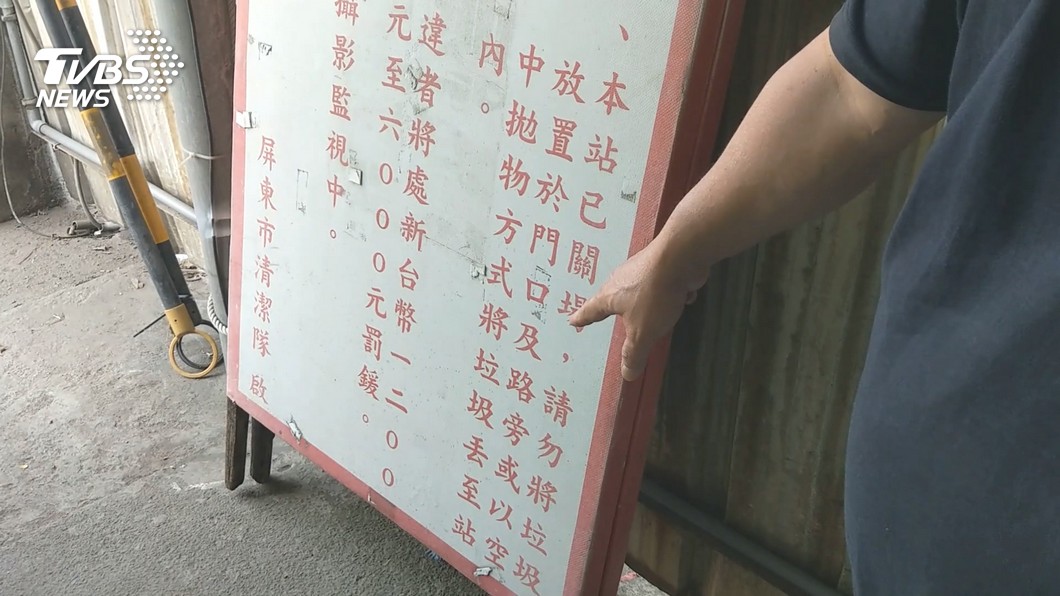 TVBS
NEWS
、本站已關場，請勿將垃圾
放置於門口及路旁或以空
中拋物方式將垃圾丟至站
內。
違者將處新台幣一二００
元至六０００元罰鍰。
攝影監視中。
屏東市清潔隊 啟